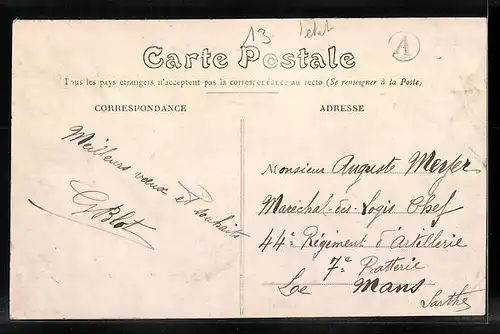 13 1 etat
A
Carte Postale
Tous les pays étrangers n'acceptent pas la correspondance au recto (Se renseigner à la Poste)
CORRESPONDANCE
Meilleurs vœux et souhaits
G Blot
ADRESSE
Monsieur Auguste Meyer
Maréchal-des-Logis Chef
44e Régiment d'Artillerie
7e Batterie
Le Mans
Sarthe